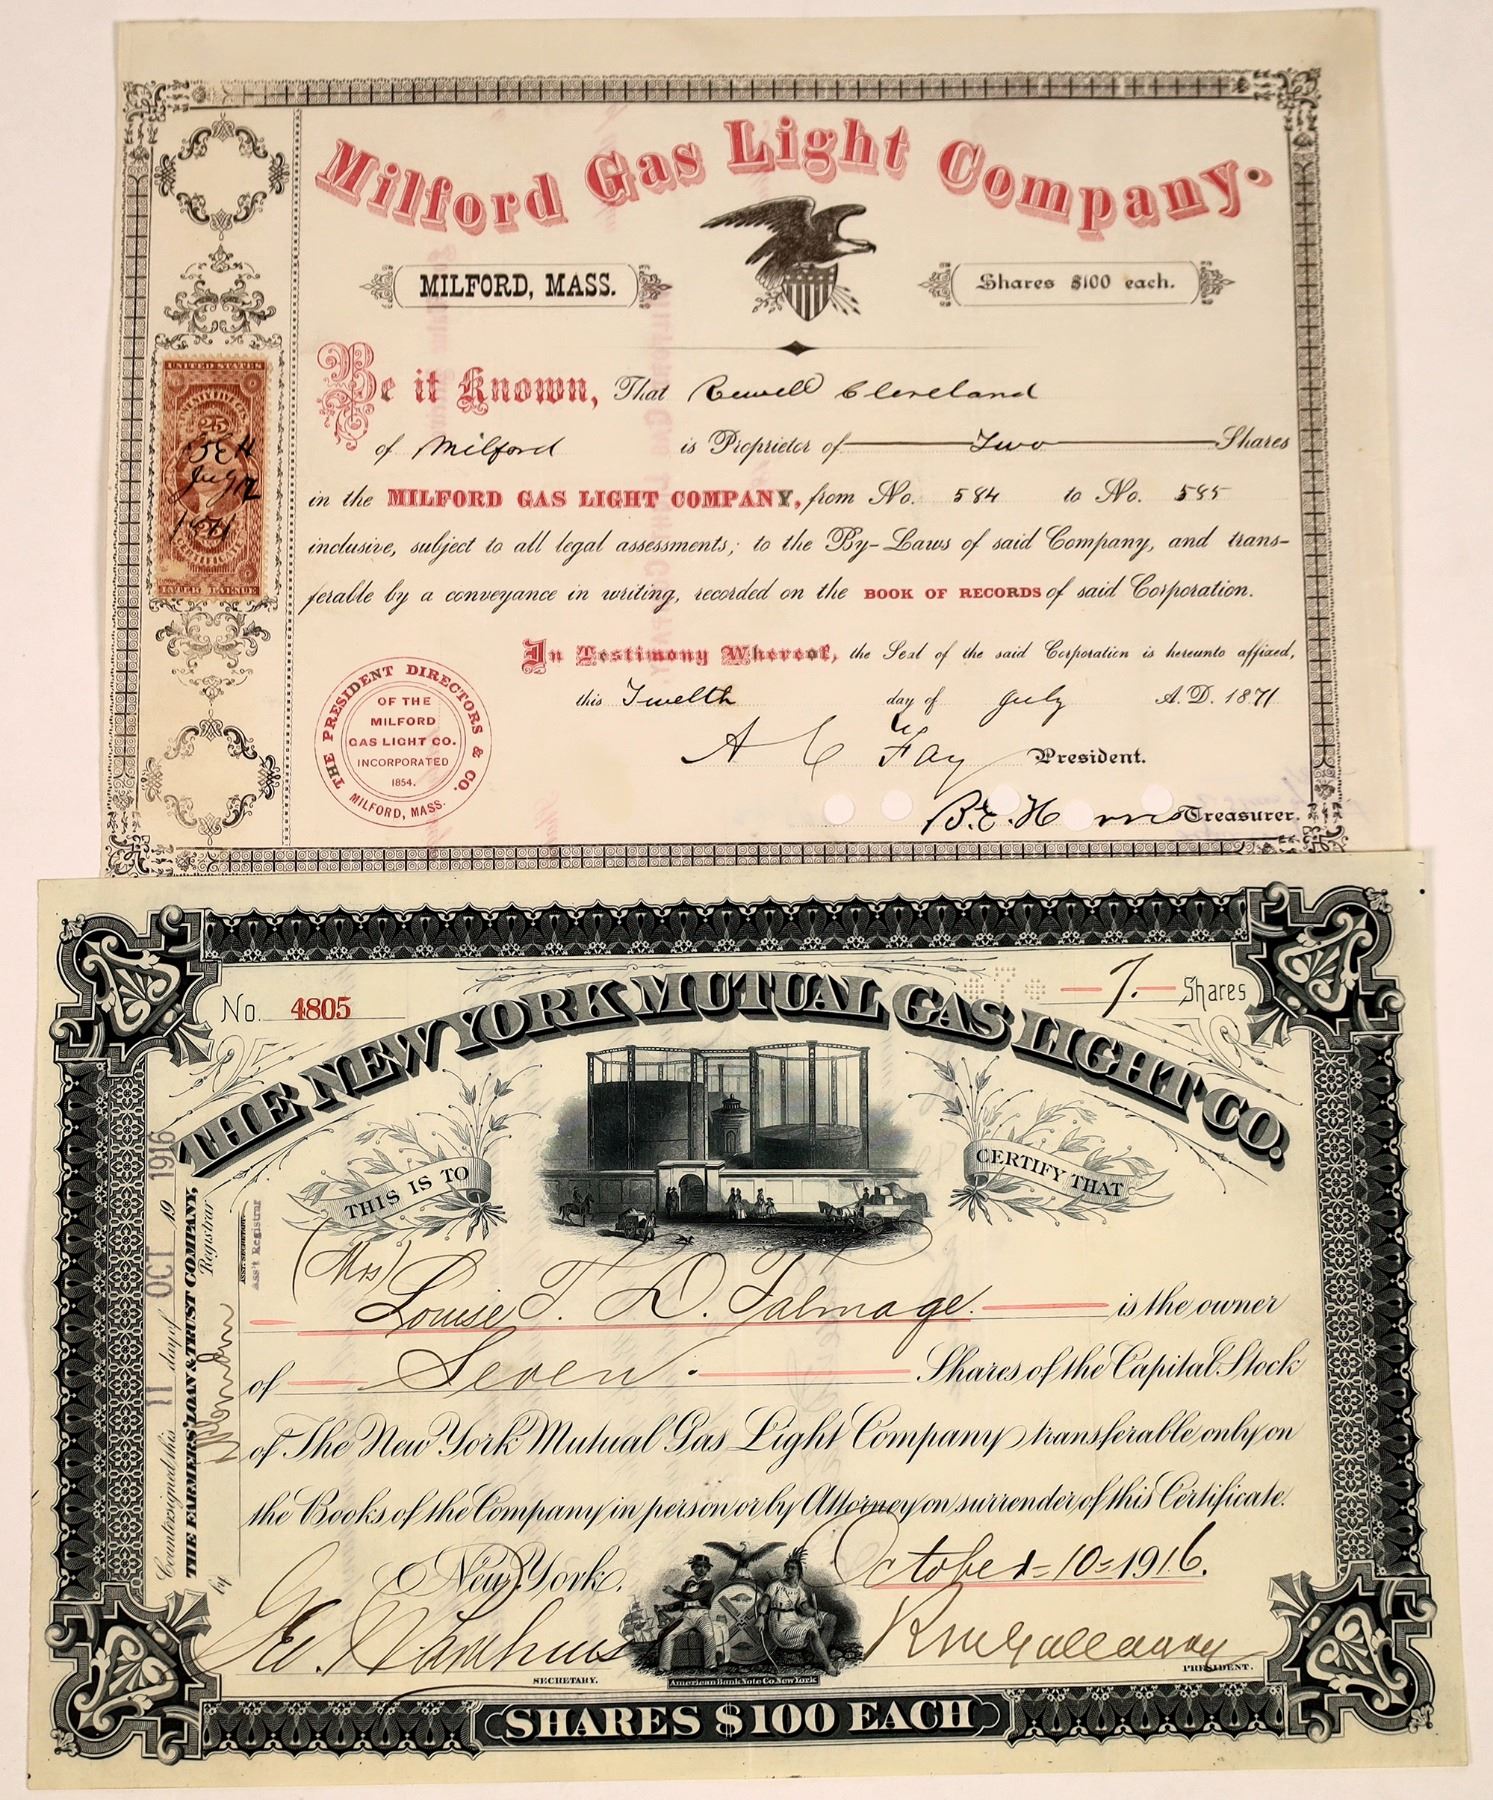 Milford Gas Light Company.
MILFORD, MASS.
Shares $100 each.
Be it Known, That Rewell Cleveland
of Milford is Proprietor of Two Shares
in the MILFORD GAS LIGHT COMPANY, from No. 584 to No. 585
inclusive, subject to all legal assessments; to the By-Laws of said Company, and trans-
ferable by a conveyance in writing, recorded on the BOOK OF RECORDS of said Corporation.
In Testimony Whereof, the Seal of the said Corporation is hereunto affixed,
this Twelth day of July A.D. 1871
A C Fay President.
B.E. H Treasurer.
UNITED STATES
TWENTY FIVE CENTS
25
BEH
July 12
1871
CERTIFICATE
INTER. REVENUE
THE PRESIDENT DIRECTORS & CO.
OF THE
MILFORD
GAS LIGHT CO.
INCORPORATED
1854.
MILFORD, MASS.
No. 4805
7. Shares
THE NEW YORK MUTUAL GAS LIGHT CO.
THIS IS TO
CERTIFY THAT
(Mrs)
Louise T. D. Talmage. is the owner
of Seven. Shares of the Capital Stock
of The New York Mutual Gas Light Company transferable only on
the Books of the Company in person or by Attorney on surrender of this Certificate.
New York, October 10 1916.
Geo.
SECRETARY.
R M Gallaway
PRESIDENT.
American Bank Note Co. New York
SHARES $100 EACH
Countersigned this 11 day of OCT 19 1916
THE FARMERS' LOAN & TRUST COMPANY,
Registrar
by
ASST. SECRETARY.
Ass't Registrar